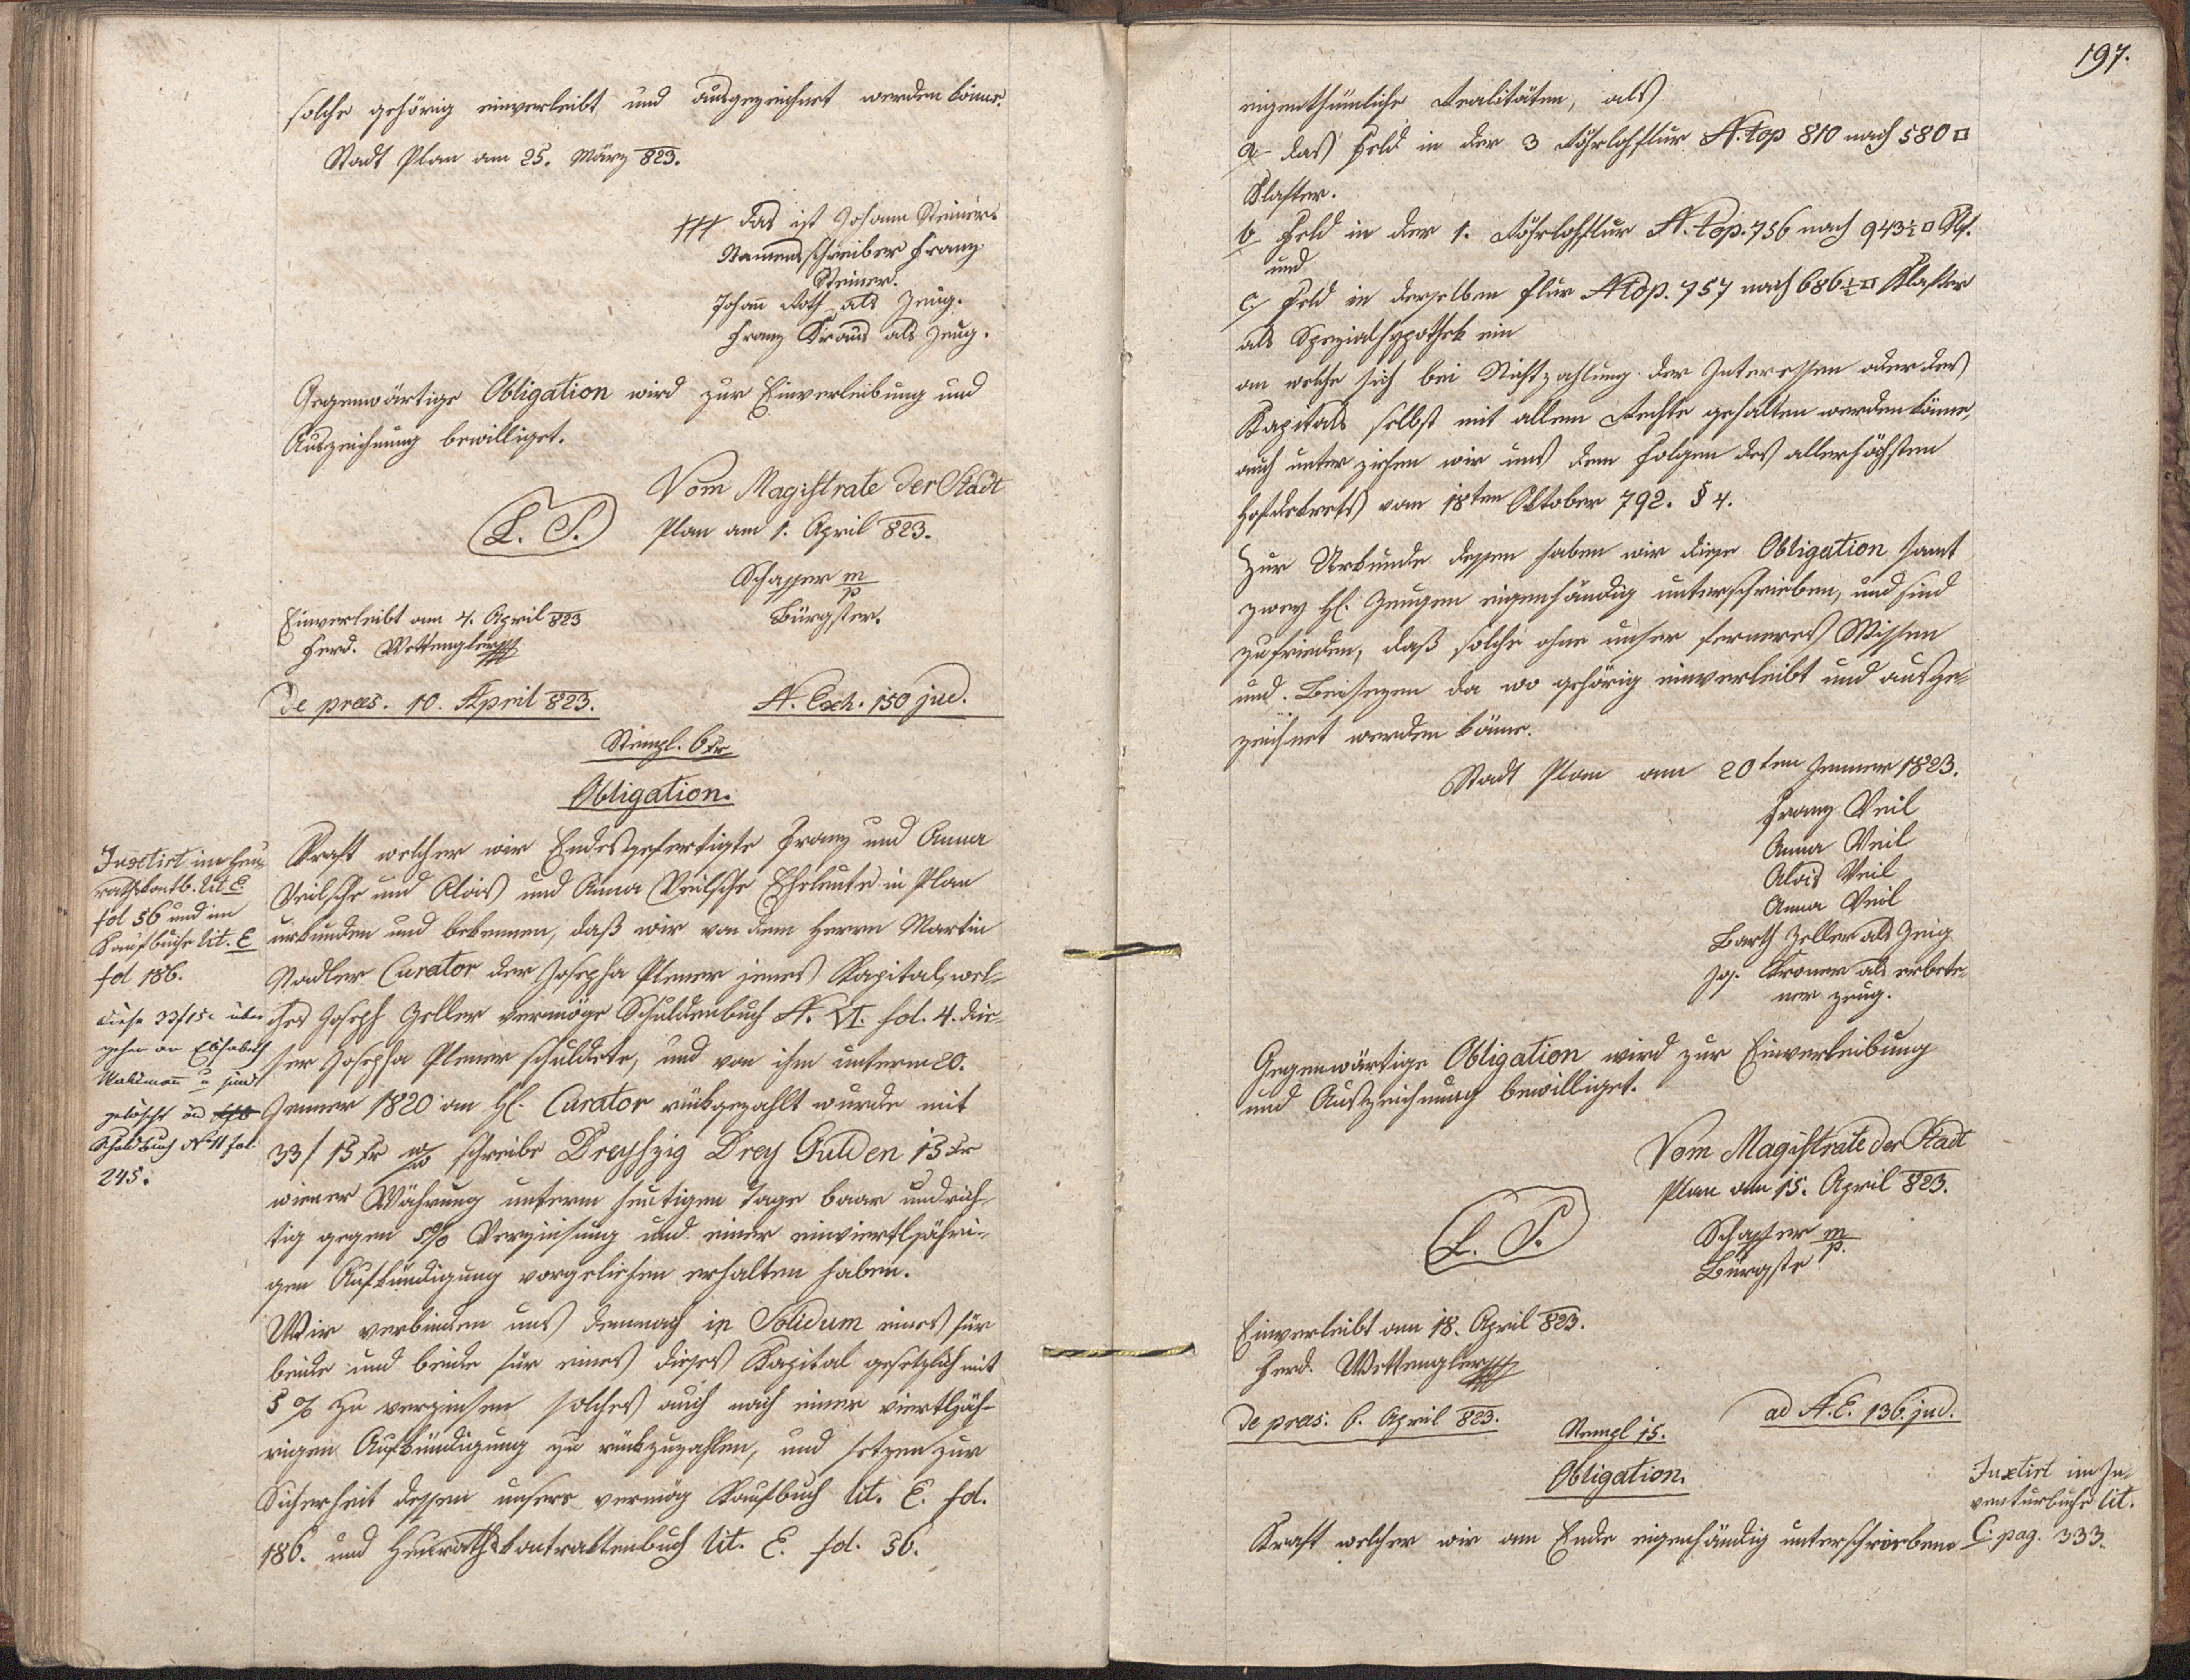 solche gehörig einverleibt und ausgezeichnet werden könne.
Stadt Plan am 25. März 823.
+++ das ist Johann Steiners
Namensschreiber Franz
Steiner.
Johann Roth als Zeug.
Franz Kraus als Zeug.
Gegenwärtige Obligation wird zur Einverleibung und
Auszeichnung bewilliget.
Vom Magistrate der Stadt
L. S. Plan am 1. April 823.
Schaffer m/p
Bürgster.
Einverleibt am 4. April 823
Ferd. Wettengler
de præs. 10. April 823. N. Exh. 150 jud.
Stempl. 6 xr
Obligation.
Juxtirt im Heu-
rathskontb. lit E.
fol 56 und im
Kaufbuche lit. E
fol 186.
diese 33f 15x über
gehen an Elisabeth
u sind
gelöscht
Schuldbuch No 11 fol.
245.
Kraft welcher wir Endesgefertigte Franz und Anna
Veilsche und Alois und Anna Veilsche Eheleute in Plan
urkunden und bekennen, daß wir von dem Herrn Martin
Stadler Curator der Josepha Plener jenes Kapital, wel-
ches Joseph Zeller vermöge Schuldenbuch N. VI. fol. 4. die-
ser Josepha Plener schuldete, und von ihm unterm 20.
Jenner 1820 an H. Curator rückgezahlt wurde mit
33 f 15 xr W/W schreibe Dreyßzig Drey Gulden 15 xr
wiener Währung unterm heutigen Tage baar und rich-
tig gegen 5% Verzinsung und einer einviertljähri-
gen Aufkündigung vorgeliehen erhalten haben.
Wir verbinden uns demnach in Solidum eines für
beide und beide für eines dieses Kapital gesetzlich mit
5 % zu verzinsen solches auch nach einer viertljäh-
rigen Aufkündigung zu rückzuzahlen, und setzen zur
Sicherheit dessen unsere vermög Kaufbuch lit. E. fol.
186. und Heurathskontraktenbuch lit. E. fol. 56.
197.
eigenthümliche Realitäten, als
a das Feld in der 3 Röhrlohflur N. top 810 nach 580 □
Klafter.
b Feld in der 1. Röhrlohflur N. top. 756 nach 943½ □ Kl.
und
c. Feld in derselben Flur N top. 757 nach 686½ □ Klafter
als Spezialhypothek ein
an welche sich bei Nichtzahlung der Interessen oder des
Kapitals selbst mit allem Rechte gehalten werden könne,
auch unter ziehen wir uns den Folgen des allerhöchsten
Hofdekrets vom 18ten Oktober 792. § 4.
Zur Urkunde dessen haben wir diese Obligation samt
zwey H. Zeugen eigenhändig unterschrieben, und sind
zufrieden, daß solche ohne unser ferneres Wissen
und Beiseyen da wo gehörig einverleibt und ausge-
zeichnet werden könne.
Stadt Plan am 20ten Jenner 1823.
Franz Veil
Anna Veil
Alois Veil
Anna Veil
Barth Zeller als Zeug
Jos. Kroner als erbete-
ner Zeug.
Gegenwärtige Obligation wird zur Einverleibung
und Auszeichnung bewilliget.
Vom Magistrate der Stadt
Plan am 15. April 823.
L. S. Schaffer m/p.
Bürgste
Einverleibt am 18. April 823.
Ferd. Wettengler
de præs. 6. April 823. ad N. E. 136. jud.
Stempl 15.
Obligation.
Juxtirt im In-
venturbuche lit.
C. pag. 333.
Kraft welcher wir am Ende eigenhändig unterschriebene